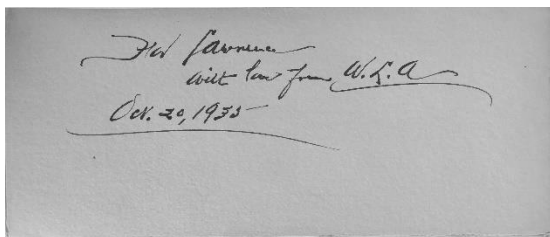 For Lawrence
with love from W.L.A
Oct. 20, 1935